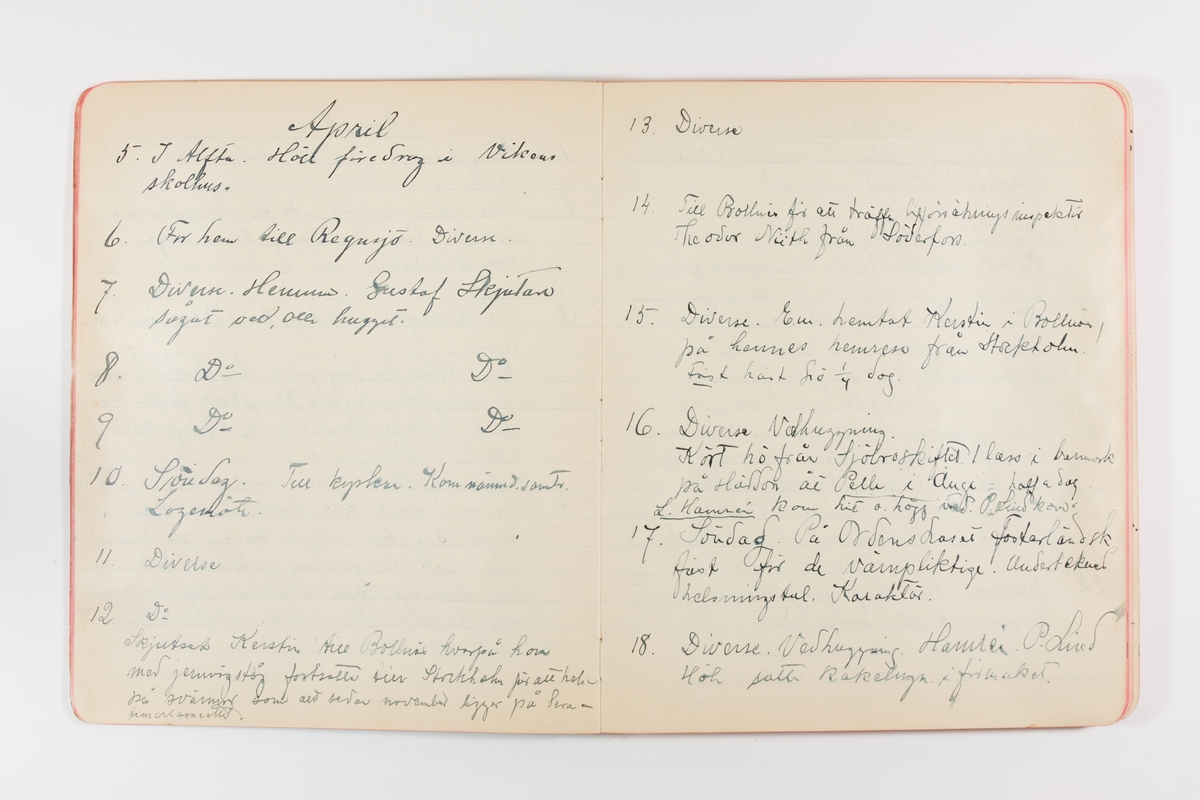 April
5. I Alfta. Höll föredrag i Vikens
skolhus.
6. For hem till Regnsjö. Diverse.
7. Diverse. Hemma. Gustaf Skjutare
sågat ved, och hugget.
8. Do Do
9 Do Do
10. Söndag. Till kyrkan. Kom.nämnd.samtr.
Logemöte.
11. Diverse
12 Do
Skjutsat Kerstin till Bollnäs hvarpå hon
med jernvägståg fortsatte till Stockholm för att helsa
på svärmor som allt sedan november ligger på Sera-
fimerlasarettet
13. Diverse
14. Till Bollnäs för att träffa lifförsäkringsinspektör
Theodor från Söderfors.
15. Diverse. Em. hemtat Kerstin i Bollnäs,
på hennes hemresa från Stockholm.
häst 1/4 dag.
16. Diverse. Vedhuggning.
Kört hö från Sjöbroskiftet 1 lass i barmark
på åt Pelle i Änge = half a dag
L. Hamrén kom hit o. högg ved. P. Lind
17. Söndag. På Ordenshuset fosterländsk
fäst för de värnpliktige. Undertecknad
helsningstal. Karaktär.
18. Diverse. Vedhuggning. Hamrén. P. Lind
Höök satte kakelugn i förmaket.